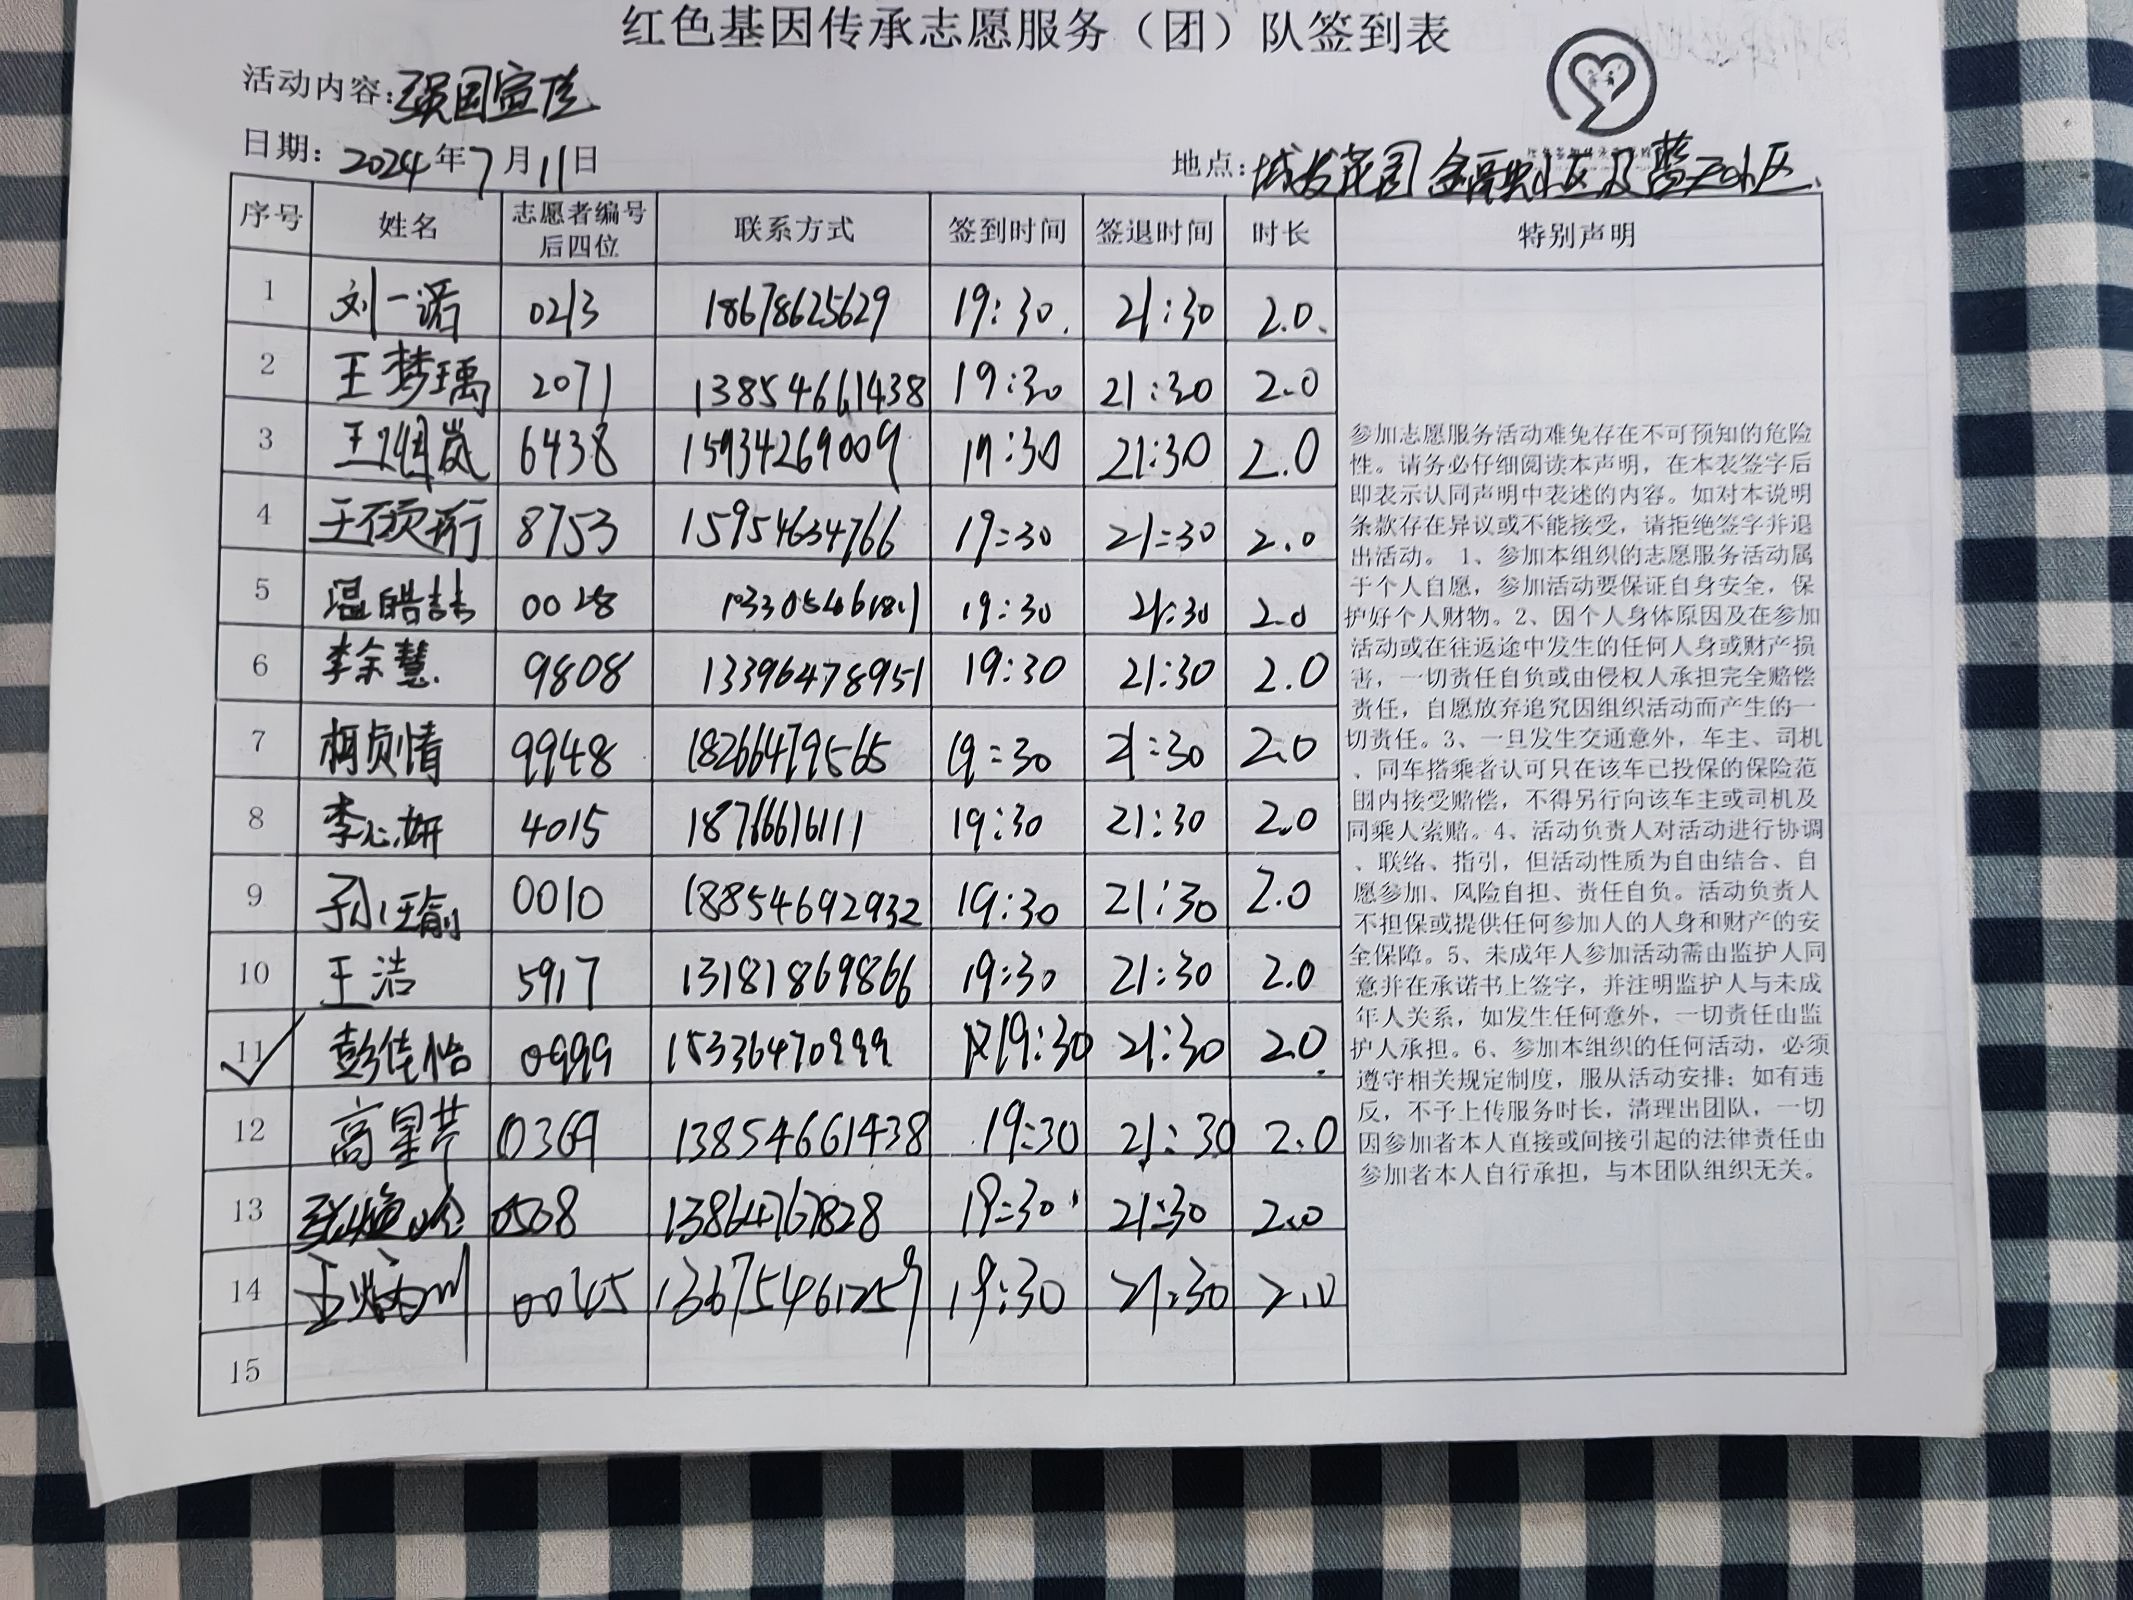 红色基因传承志愿服务（团）队签到表
活动内容：强国宣传
日期：2024年7月11日
地点：城发花园 金融小区及蓝天小区
序号 姓名 志愿者编号后四位 联系方式 签到时间 签退时间 时长 特别声明
1 刘一诺 0213 18678625629 19:30 21:30 2.0
2 王梦瑀 2071 13854661438 19:30 21:30 2.0
3 王烟岚 6438 15934269009 19:30 21:30 2.0
4 王颀珩 8753 15954634766 19:30 21:30 2.0
5 温皓喆 0028 19:30 21:30 2.0
6 李余慧 9808 13396478951 19:30 21:30 2.0
7 柯贞情 9948 18266479565 19:30 21:30 2.0
8 李心妍 4015 18766616111 19:30 21:30 2.0
9 0010 18854692932 19:30 21:30 2.0
10 王洁 5917 13181869866 19:30 21:30 2.0
11 彭佳怡 0999 15336470999 19:30 21:30 2.0
12 高星芹 0369 13854661438 19:30 21:30 2.0
13 0508 13864767828 19:30 21:30 2.0
14 0045 13675461259 19:30 21:30 2.0
15
参加志愿服务活动难免存在不可预知的危险
性。请务必仔细阅读本声明，在本表签字后
即表示认同声明中表述的内容。如对本说明
条款存在异议或不能接受，请拒绝签字并退
出活动。 1、参加本组织的志愿服务活动属
于个人自愿，参加活动要保证自身安全，保
护好个人财物。2、因个人身体原因及在参加
活动或在往返途中发生的任何人身或财产损
害，一切责任自负或由侵权人承担完全赔偿
责任，自愿放弃追究因组织活动而产生的一
切责任。3、一旦发生交通意外，车主、司机
、同车搭乘者认可只在该车已投保的保险范
围内接受赔偿，不得另行向该车主或司机及
同乘人索赔。4、活动负责人对活动进行协调
、联络、指引，但活动性质为自由结合、自
愿参加、风险自担、责任自负。活动负责人
不担保或提供任何参加人的人身和财产的安
全保障。5、未成年人参加活动需由监护人同
意并在承诺书上签字，并注明监护人与未成
年人关系，如发生任何意外，一切责任由监
护人承担。6、参加本组织的任何活动，必须
遵守相关规定制度，服从活动安排；如有违
反，不予上传服务时长，清理出团队，一切
因参加者本人直接或间接引起的法律责任由
参加者本人自行承担，与本团队组织无关。